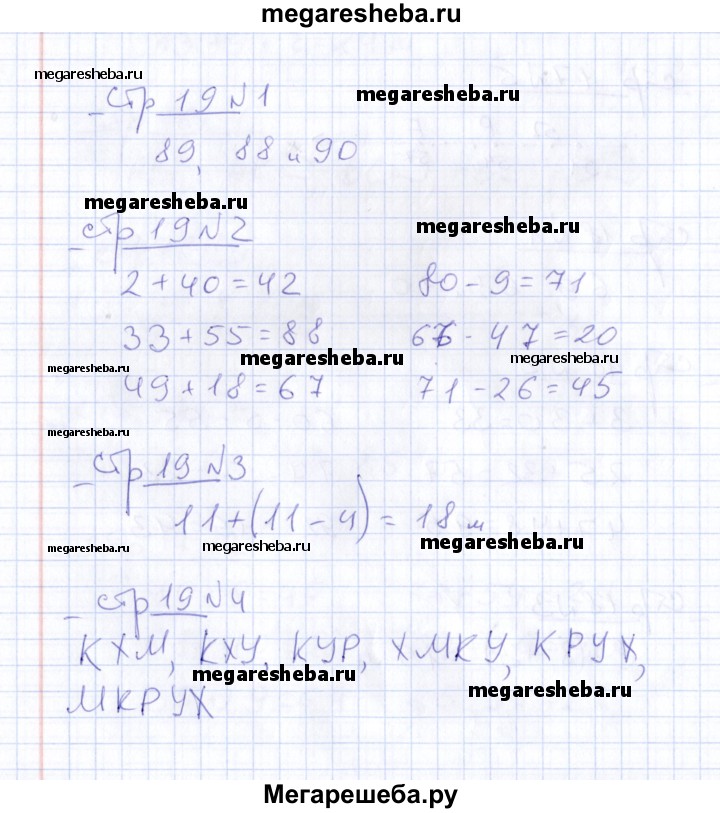 megaresheba.ru
megaresheba.ru
стр 19 №1
megaresheba.ru
89, 88 и 90
megaresheba.ru
стр 19 №2
megaresheba.ru
2 + 40 = 42 80 - 9 = 71
33 + 55 = 88 - 47 = 20
megaresheba.ru megaresheba.ru
megaresheba.ru
49 + 18 = 67 71 - 26 = 45
megaresheba.ru
стр 19 №3
11 + (11 - 4) = 18 м
megaresheba.ru megaresheba.ru megaresheba.ru
стр 19 №4
КХМ, КХУ, КУР, ХМКУ, КРУХ,
megaresheba.ru megaresheba.ru
МКРУХ
Мегарешеба.ру